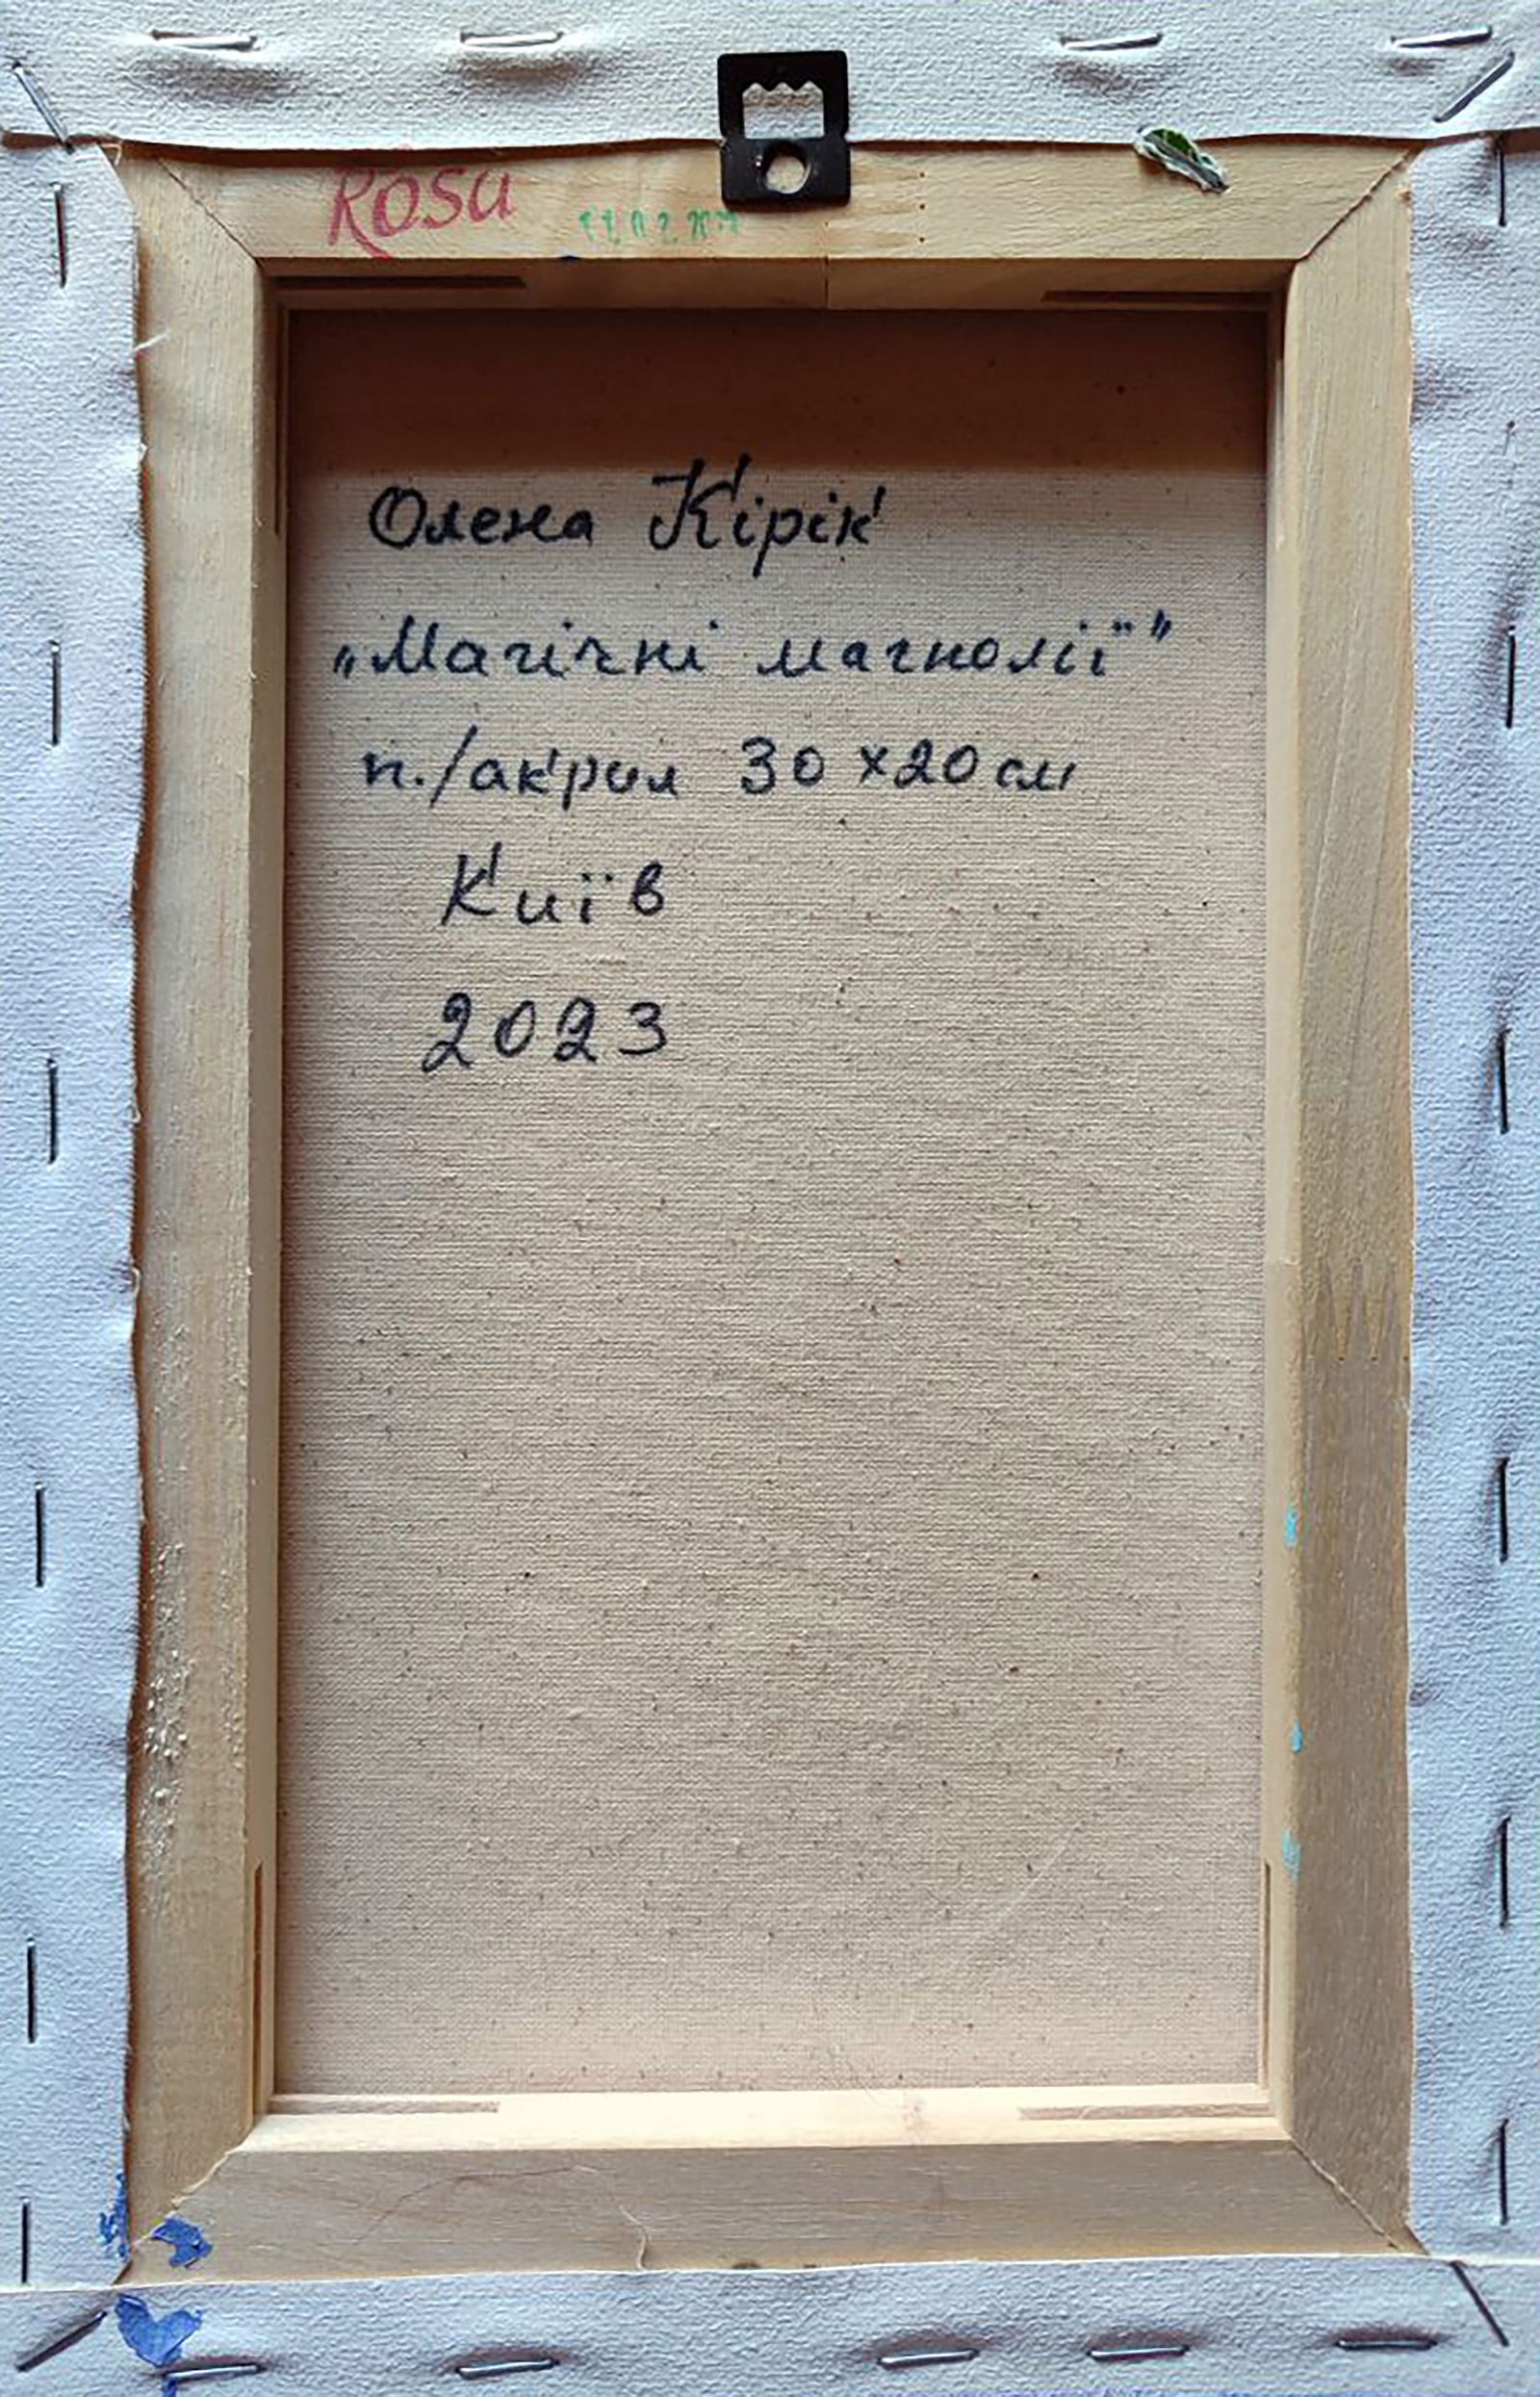 Rosa
Олена Кірік
„Магічні магнолії"
п./акрил 30×20 см
Київ
2023